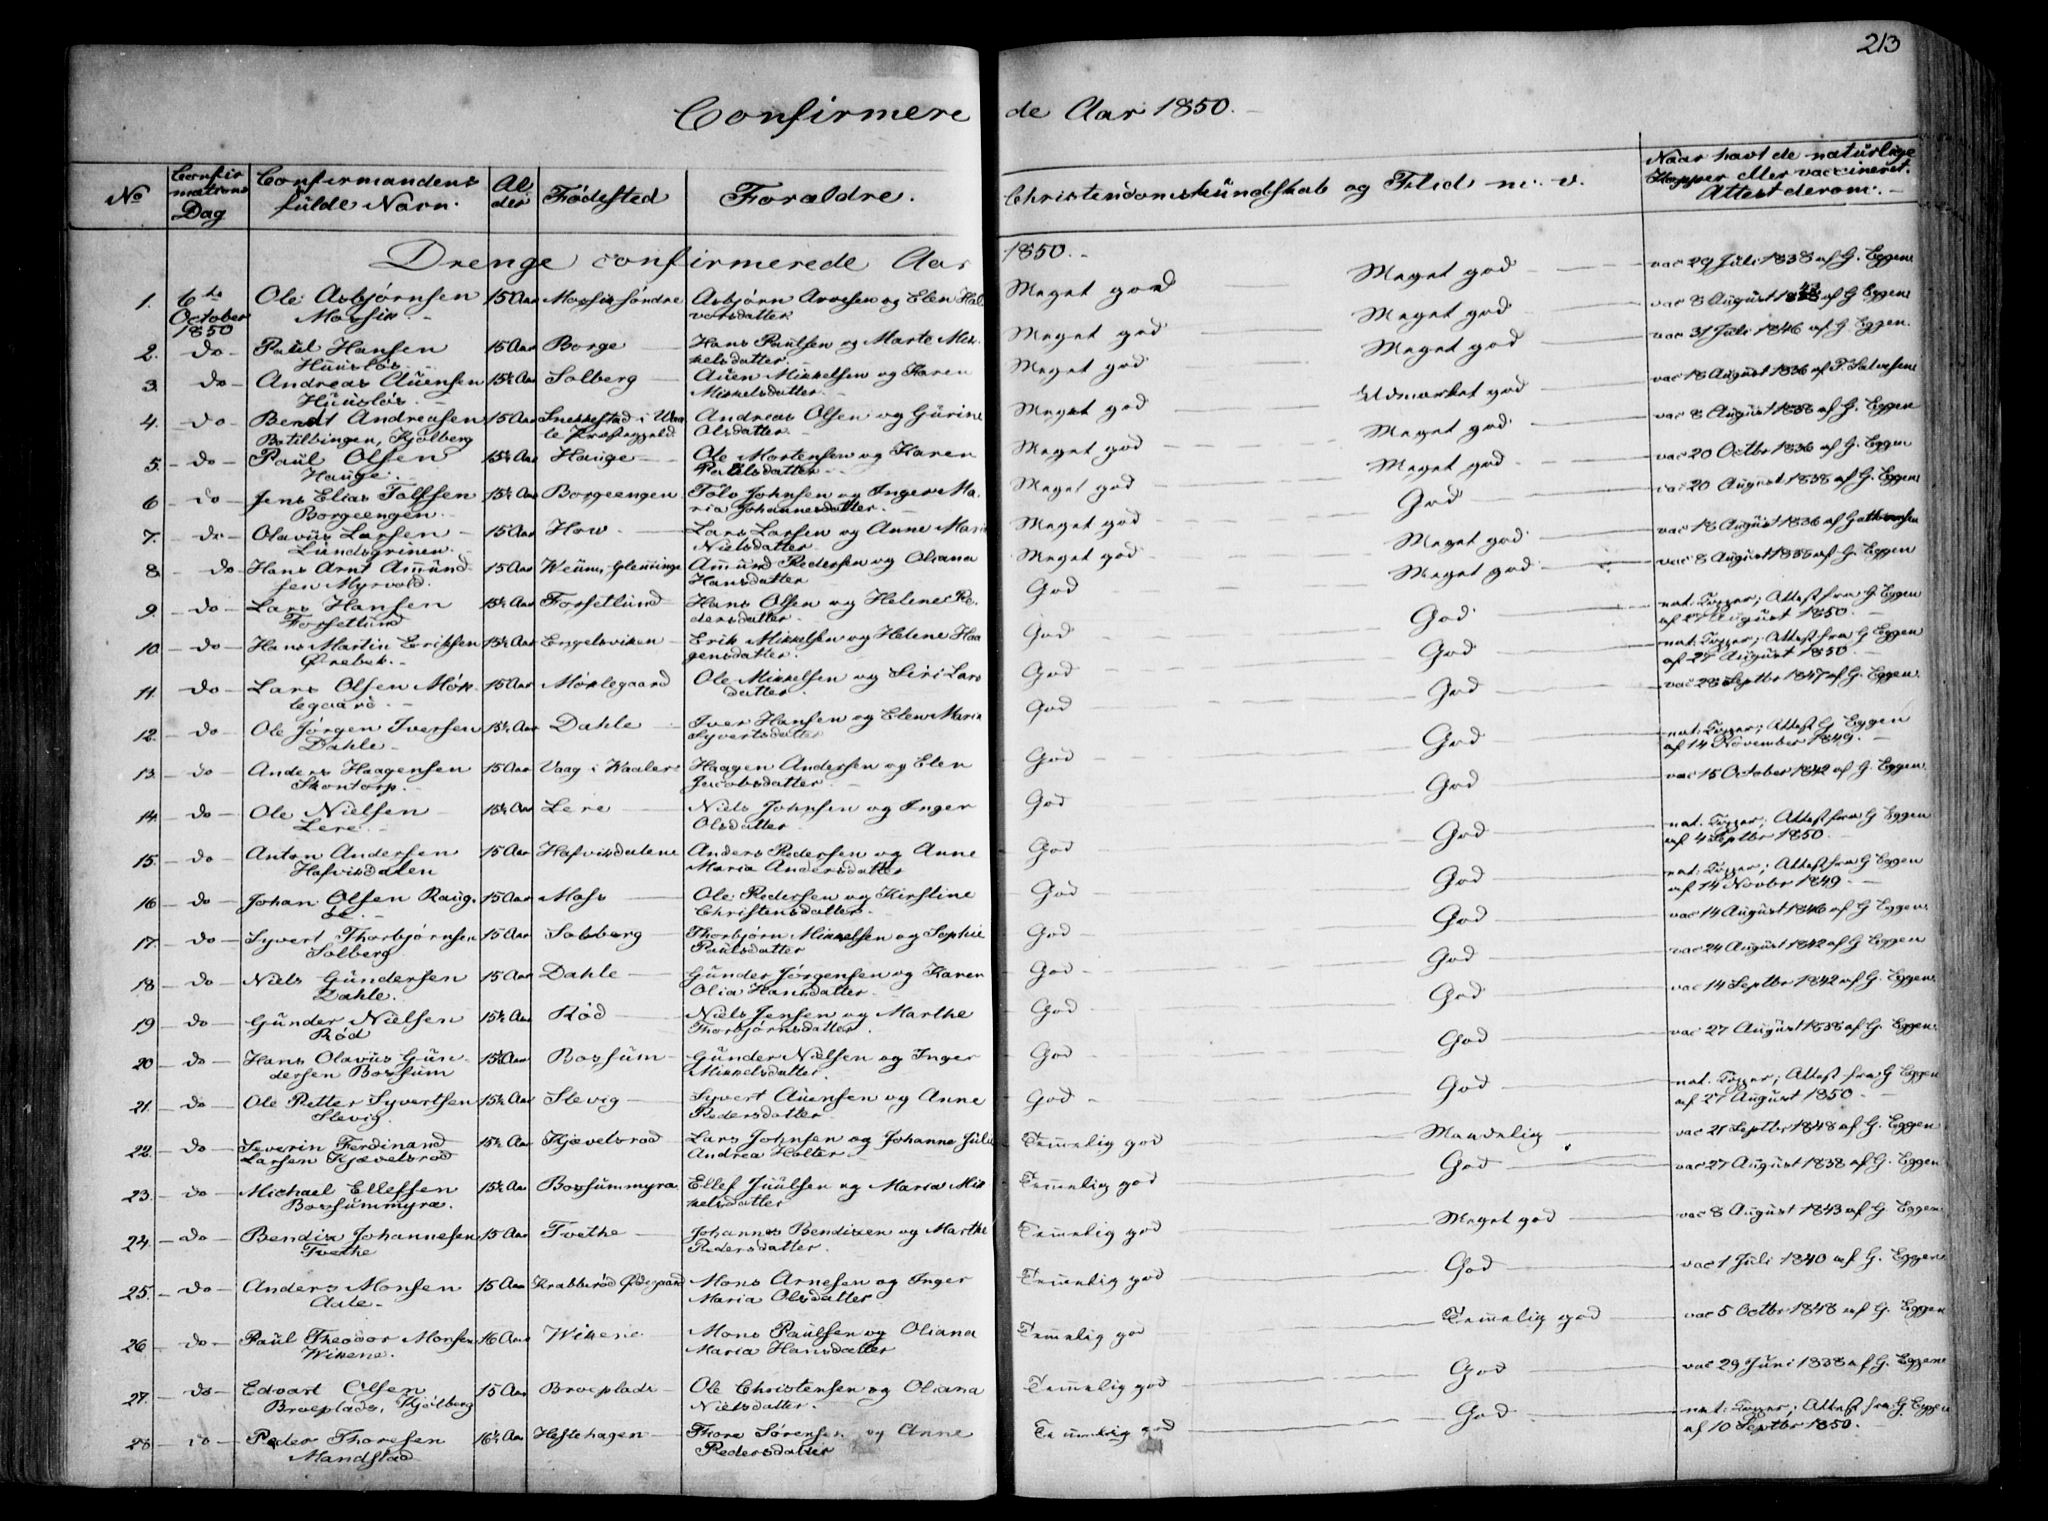 213
Confirmerede Aar 1850.
No
Confirmations Dag
Confirmandens fulde Navn.
Alder
Fødested
Forældre.
Christendomskundskab og Flid m. v.
Naar havt de naturlige Kopper eller vaccineret. Attest derom.
Drenge confirmerede Aar 1850.
1. 6te October 1850 Ole Asbjørnsen 15 Aar Mossik søndre Asbjørn Arvesen og Elen Hal Meget god Meget god vac 29 Juli 1838 af G. Eggen
Mossik. vorsdatter.
2. do Paul Hansen 15 Aar Borge Hans Paulsen og Marte Mik Meget god Meget god vac 8 August af G Eggen
Huusløs. kelsdatter.
3. do Andreas Auensen 15½ Aar Solberg Auen Mikkelsen og Karen Meget god Meget god vac 31 Juli 1846 af G Eggen.
Huusløs. Mikkelsdatter.
4. do Bendt Andreasen 15 Aar Snekkestad i Andreas Olsen og Gurine Meget god Udmærket god vac 18 August 1836 af F. Salvesen
Botilbingen, Kjølberg Præstegjeld Olsdatter.
5. do Paul Olsen 15½ Aar Hauge Ole Mortensen og Karen Meget god Meget god vac 8 August 1838 af G. Eggen
Hauge. Paulsdatter.
6 do Jens Elias Tolfsen 15½ Aar Borgeengen Tolv Johnsen og Inger Ma Meget god Meget god vac 20 Octbr 1836 af G. Eggen
Borgeengen. ria Johannesdatter.
7. do Olavus Larsen 15 Aar How Lars Larsen og Anne Maria Meget god God vac 20 August 1838 af G. Eggen
Lundsgrinen. Nielsdatter
8. do Hans Arnt Amund 15 Aar Glemminge Amund Pedersen og Oliana Meget god Meget god vac 18 August 1836 af
sen Myrvold. Hansdatter
9. do Lars Hansen 15½ Aar Forsetlund Hans Olsen og Helene Pe God Meget god vac 8 August 1838 af G. Eggen
Forsetlund dersdatter.
10. do Hans Martin Eriksen 15½ Aar Engelsviken Erik Mikkelsen og Helene Haa God God nat. Kopper; Attest fra G Eggen
Ørebek. gensdatter. af 27 August 1850.
11 do Lars Olsen Møk 15 Aar Møklegaard Ole Mikkelsen og Siri Lars God God nat. Kopper; Attest fra G Eggen
legaard. datter. af 27 August 1850.
12. do Ole Jørgen Iversen 15½ Aar Dahle Iver Hansen og Elen Maria God God vac 28 Septbr 1847 af G. Eggen
Dahle Syvertsdatter
13. do Anders Haagensen 15 Aar Vaag i Waaler Haagen Andersen og Elen God God nat. Kopper; Attest G Eggen
Skontorp. Jacobsdatter. af 14 November 1849.
14 do Ole Nielsen 15½ Aar Lere Niels Johnsen og Inger God God vac 15 October 1842 af G. Eggen
Lere. Olsdatter.
15. do Anton Andersen 15 Aar Hafvikdalene Anders Pedersen og Anne God God nat. Kopper; Attest fra G Eggen
Hafvikdalen Maria Andersdatter af 4 Septbr 1850.
16 do Johan Olsen Raug 15 Aar Moss Ole Pedersen og Kirstine God God nat. Kopper; Attest fra G Eggen
Christensdatter. af 14 Novbr 1849.
17. do Syvert Thorbjørnsen 15 Aar Solberg Thorbjørn Mikkelsen og Sophie God God vac 14 August 1846 af G. Eggen
Solberg Paulsdatter
18 do Niels Gundersen 15 Aar Dahle Gunder Jørgensen og Karen God God vac 24 August 1842 af G Eggen
Dahle. Olia Hansdatter
19 do Gunder Nielsen 15½ Aar Rød Niels Jensen og Marthe God God vac 14 Septbr 1842 af G. Eggen
Rød Thorbjørnsdatter.
20 do Hans Olavus Gun 15½ Aar Bossum Gunder Nielsen og Inger God God vac 27 August 1838 af G. Eggen
dersen Bossum Mikkelsdatter.
21. do Ole Petter Syvertsen 15½ Aar Slevig Syvert Auensen og Anne God God nat. Kopper; Attest fra G Eggen
Slevig. Pedersdatter af 27 August 1850
22. do Severin Ferdinand 15½ Aar Kjævelsrød Lars Johnsen og Johanne Julie Temmelig god Maadelig vac 21 Septbr 1848 af G. Eggen
Larsen Kjævelsrød Andrea Holter
23. do Michael Ellefsen 15½ Aar Bossummyra Ellef Juulsen og Maria Mik Temmelig god God vac 27 August 1838 af G. Eggen
Bossummyra. kelsdatter
24. do Bendix Johannesen 15 Aar Tvethe Johannes Bendixen og Marthe Temmelig god Meget god vac 8 August 1843 af G. Eggen
Tvethe Pedersdatter.
25. do Anders Monsen 15 Aar Krabberød Ødegaard Mons Arnesen og Inger Temmelig god God vac 1 Juli 1840 af G. Eggen
Aale Maria Olsdatter
26 do Paul Theodor Monsen 16 Aar Wikene Mons Paulsen og Oliana Temmelig god Temmelig god vac 5 Octbr 1848 af G. Eggen
Wikene. Maria Hansdatter
27. do Edvart Olsen 15 Aar Broeplads Ole Christensen og Oliana Temmelig god God vac 29 Juni 1838 af G. Eggen
Broeplads, Kjølberg Nielsdatter.
28 do Peder Thoresen 16½ Aar Heftehagen Thore Sørensen og Anne Temmelig god God nat. Kopper; Attest fra G. Eggen
Mandstad Pedersdatter af 10 Septbr 1850.